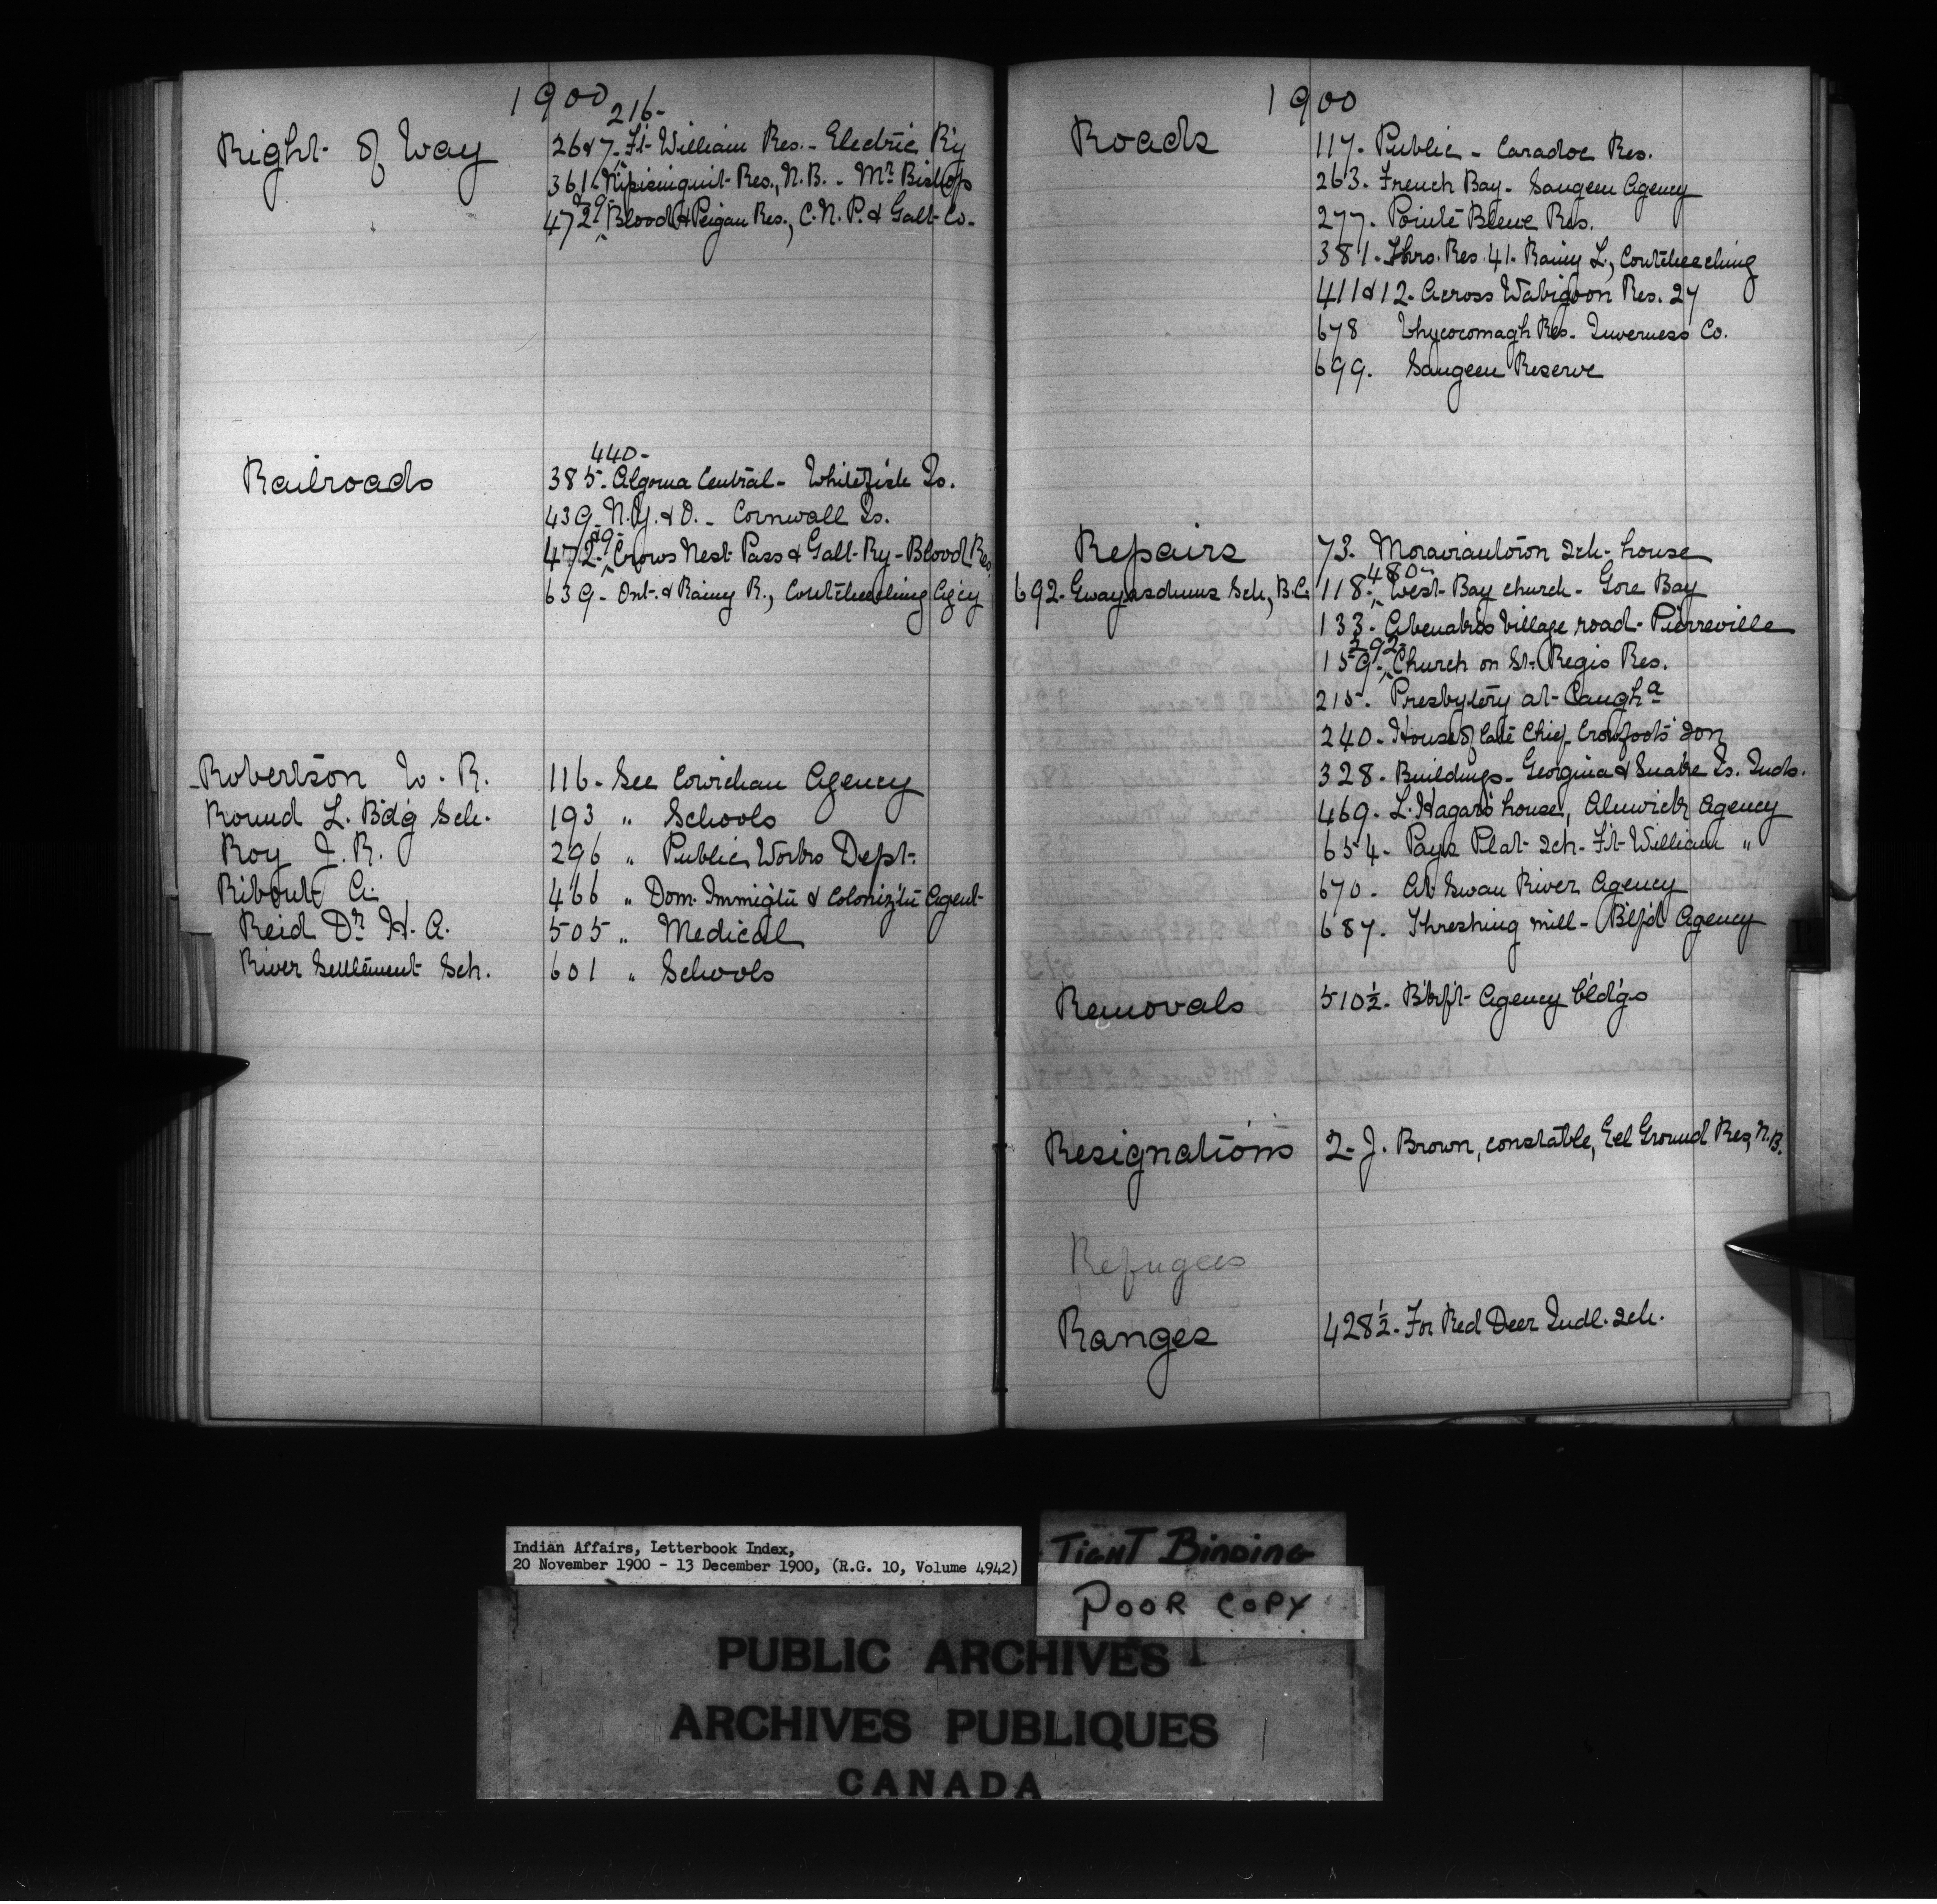 1900
216-
Right of Way
26&7. Ft. William Res. - Electric Ry
361. Nipisinquit Res., N.B. - Mr. Bishop
&9-
472. Blood & Peigan Res., C.N.P. & Galt Co.
440-
Railroads
385. Algoma Central - Whitefish Is.
439. N.Y. & O. - Cornwall Is.
&9-
472. Crows Nest Pass & Galt Ry - Blood Res.
639 - Ont. & Rainy R., Coutcheeching Agcy
Robertson W. R. 116 - See Cowichan Agency
Round L. B'd'g Sch. 193 " Schools
Roy J. R. 296 " Public Works Dept.
Ribout A. 466 " Dom. Immig'tn & Coloniz'tn Agent
Reid Dr. H. A. 505 " Medical
River Settlement Sch. 601 " Schools
1900
Roads
117. Public - Caradoc Res.
263. French Bay - Saugeen Agency
277. Pointe Bleue Res.
381. Thro. Res. 41. Rainy L., Coutcheeching
411&12. Across Wabigoon Res. 27
678 Whycocomagh Res. Inverness Co.
699. Saugeen Reserve
Repairs
73. Moraviantown sch-house
480-
118. West Bay church - Gore Bay
692. Gwayasdums Sch., B.C.
133. Abenakis Village road - Pierreville
292
159. Church on St. Regis Res.
215. Presbytery at Caugh a
240. House of late Chief Crowfoot's son
328. Buildings - Georgina & Snake Is. Inds.
469. L. Hagar's house, Alnwick Agency
654. Pays Plat sch. Ft. William "
670. At Swan River Agency
687. Threshing mill - B'lf'd Agency
Removals
510½. B'kf't Agency bld'gs
Resignations
2. J. Brown, constable, Eel Ground Res, N.B.
Refugees
Ranges
428½. For Red Deer Indl. sch.
Indian Affairs, Letterbook Index,
20 November 1900 - 13 December 1900, (R.G. 10, Volume 4942)
TIGHT BINDING
POOR COPY
PUBLIC ARCHIVES
ARCHIVES PUBLIQUES
CANADA